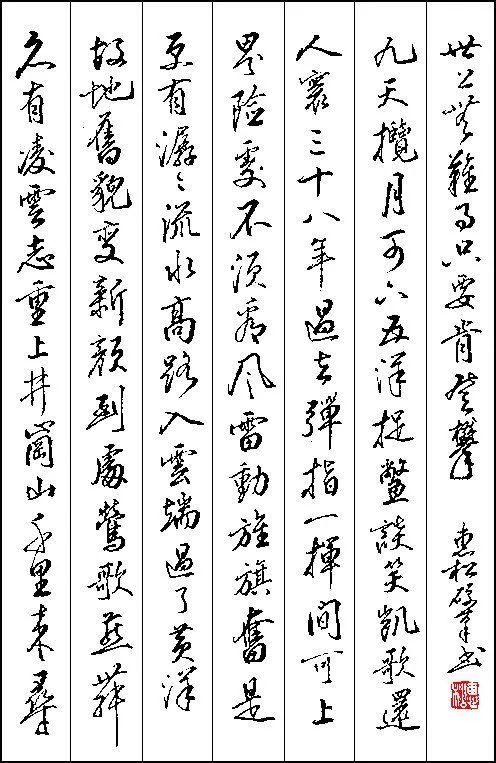 久有凌雲志重上井崗山千里来尋
故地舊貌变新顏到處鶯歌燕舞
更有潺〻流水高路入雲端過了黄洋
界險處不須看風雷動旌旗奮是
人寰三十八年過去彈指一揮間可上
九天攬月可下五洋捉鱉談笑凱歌還
世上無難事只要肯登攀 惠松硬筆書
惠松